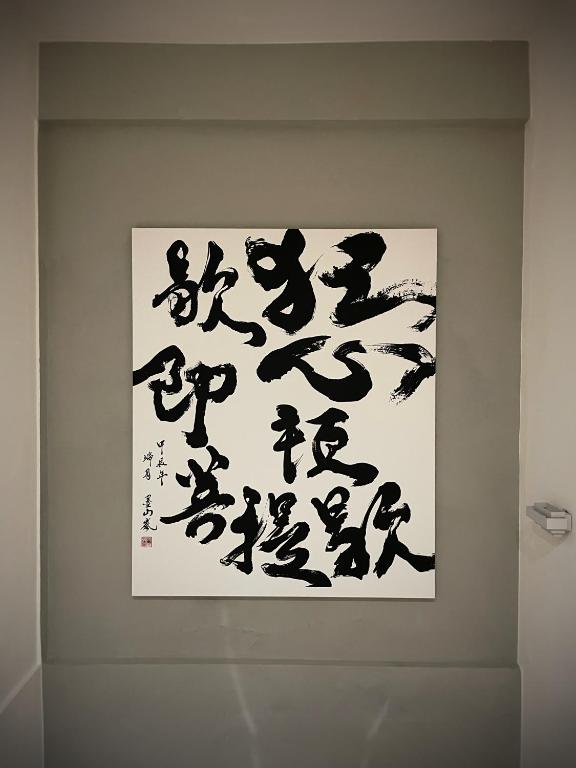 狂心頓歇
歇即菩提
甲辰年
月 墨山